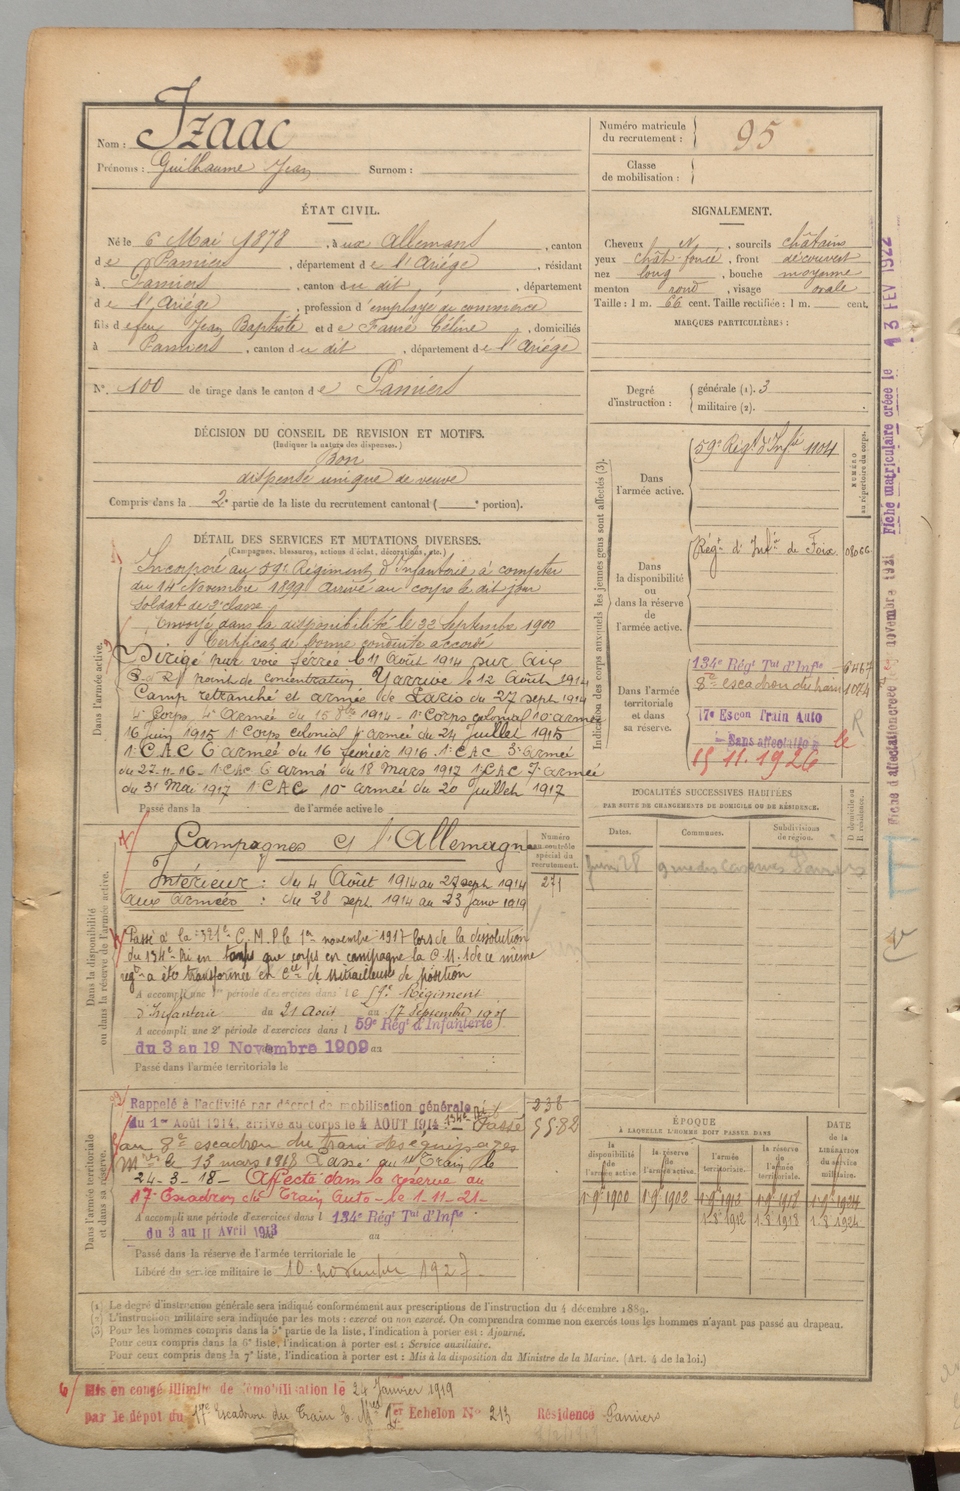 Nom : Izaac
Prénoms : Guilhaume Jean Surnom :
Numéro matricule du recrutement : 95
Classe de mobilisation :
ÉTAT CIVIL.
Né le 6 Mai 1878, à ux Allemans, canton
de Pamiers, département de l'Ariége, résidant
à Pamiers, canton du dit, département
de l'Ariége, profession d'employé de commerce
fils de feu Jean Baptiste et de Faure Céline, domiciliés
à Pamiers, canton du dit, département de l'Ariége
N° 100 de tirage dans le canton de Pamiers
SIGNALEMENT.
Cheveux N, sourcils châtains
yeux chât-foncé, front découvert
nez long, bouche moyenne
menton rond, visage ovale
Taille : 1 m. 66 cent. Taille rectifiée : 1 m. cent.
MARQUES PARTICULIÈRES :
Degré d'instruction : générale (1). 3
militaire (2).
DÉCISION DU CONSEIL DE REVISION ET MOTIFS.
(Indiquer la nature des dispenses.)
Bon
dispensé unique de veuve
Compris dans la 2e partie de la liste du recrutement cantonal ( e portion).
DÉTAIL DES SERVICES ET MUTATIONS DIVERSES.
(Campagnes, blessures, actions d'éclat, décorations, etc.)
Dans l'armée active.
Incorporé au 59e Régiment d'infanterie à compter
du 14 Novembre 1899 Arrivé au corps le dit jour
Soldat de 2e classe
Envoyé dans la disponibilité le 22 Septembre 1900
Certificat de bonne conduite accordé
Dirigé par voie ferrée le 11 Août 1914 sur Aix
point de concentration Y arrive le 12 Août 1914
Camp retranché et armée de Paris du 27 sept 1914
4e Corps, 4e Armée du 15 1914 - 1e Corps colonial 10e armée
16 juin 1915 1e Corps colonial armée du 24 juillet 1915
1e C.A.C 6e armée du 16 février 1916 - 1e C.A.C 3e armée
du 22-11-16 - 1e CAC 6e armée du 18 Mars 1917 1e CAC 7e armée
du 31 Mai 1917 1e CAC 10e armée du 20 juillet 1917
Passé dans la de l'armée active le
Indication des corps auxquels les jeunes gens sont affectés (3).
NUMÉRO au répertoire du corps.
Dans l'armée active. 59e Régt d'Infie 1104
Dans la disponibilité ou dans la réserve de l'armée active. Régt d'Infie de Foix 08066
Dans l'armée territoriale et dans sa réserve. 134e Régt Tal d'Infie
8e escadron du train 1074
17e Escon Train Auto
Sans affectation le
15 11. 1926
LOCALITÉS SUCCESSIVES HABITÉES
PAR SUITE DE CHANGEMENTS DE DOMICILE OU DE RÉSIDENCE.
Dates. Communes. Subdivisions de région. D domicile ou R résidence.
Juin 28 9 rue des Casernes Pamiers
Dans la disponibilité ou dans la réserve de l'armée active.
Campagnes c/ l'Allemagne
Intérieur : du 4 Août 1914 au 27 sept 1914
aux armées : du 28 sept 1914 au 23 janv 1919
Numéro au contrôle spécial du recrutement.
271
Passé à la 321e C.M.P. le 1er novembre 1917 lors de la dissolution
du 134e Ri en tant que corps en campagne la C M. 1 de ce même
régt a été transformée en Cie de mitrailleurs de position
A accompli une 1re période d'exercices dans le 59e Régiment
d'Infanterie du 21 Août au 17 Septembre 1905
A accompli une 2e période d'exercices dans l 59e Régt d'Infanterie
du 3 au 19 Novembre 1909 au
Passé dans l'armée territoriale le
Dans l'armée territoriale et dans sa réserve.
Rappelé à l'activité par décret de mobilisation générale
du 1er Août 1914, arrivé au corps le 4 AOUT 1914 134e Passé
au 8e escadron du train des équipages
Mres le 13 mars 1918 Passé au Train le
24-3-18 - Affecté dans la réserve au
17e Escadron du Train Auto - le 1-11-21 -
236
5582
A accompli une période d'exercices dans l 134e Régt Tal d'Infie
du 3 au 11 Avril 1913 au
Passé dans la réserve de l'armée territoriale le
Libéré du service militaire le 10 novembre 1927
ÉPOQUE
À LAQUELLE L'HOMME DOIT PASSER DANS
la disponibilité de l'armée active. la réserve de l'armée active. l'armée territoriale. la réserve de l'armée territoriale. DATE de la LIBÉRATION du service militaire.
1-9bre 1900 1-9bre 1902 1-9bre 1912 1-9bre 1918 1-9bre 1924
1-8bre 1912 1-8bre 1918 1-8bre 1924
(1) Le degré d'instruction générale sera indiqué conformément aux prescriptions de l'instruction du 4 décembre 1889.
(2) L'instruction militaire sera indiquée par les mots : exercé ou non exercé. On comprendra comme non exercés tous les hommes n'ayant pas passé au drapeau.
(3) Pour les hommes compris dans la 5e partie de la liste, l'indication à porter est : Ajourné.
Pour ceux compris dans la 6e liste, l'indication à porter est : Service auxiliaire.
Pour ceux compris dans la 7e liste, l'indication à porter est : Mis à la disposition du Ministre de la Marine. (Art. 4 de la loi.)
6/ Mis en congé illimité de démobilisation le 24 Janvier 1919
par le dépôt du 17e Escadron du Train E. Mres 1er Echelon No 213 Résidence Pamiers
Fiche d'affectation créée le novembre 1921 Fiche matriculaire créée le 13 FEV 1922